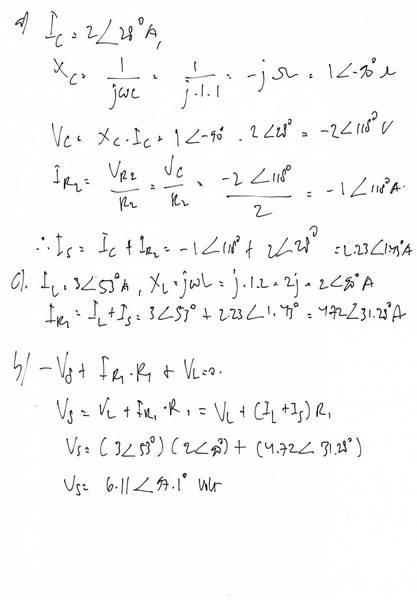 a) I_C = 2∠28° A,
X_C = 1/jωC = 1/j.1.1 = -jΩ = 1∠-90° Ω
V_C = X_C . I_C = 1∠-90° . 2∠28° = -2∠118° V
I_R2 = V_R2/R_2 = V_C/R_2 = -2∠118°/2 = -1∠118° A.
∴ I_S = I_C + I_R2 = -1∠118° + 2∠28° = 2.23∠1.43° A
c). I_L = 3∠53° A, X_L = jωL = j.1.2 = 2j = 2∠90° A
I_R1 = I_L + I_S = 3∠53° + 2.23∠1.43° = 4.72∠31.28° A
b) -V_S + I_R1 . R_1 + V_L = 0.
V_S = V_L + I_R1 . R_1 = V_L + (I_L + I_S) R_1
V_S = (3∠53°) (2∠90°) + (4.72∠31.28°)
V_S = 6.11∠97.1° Volt